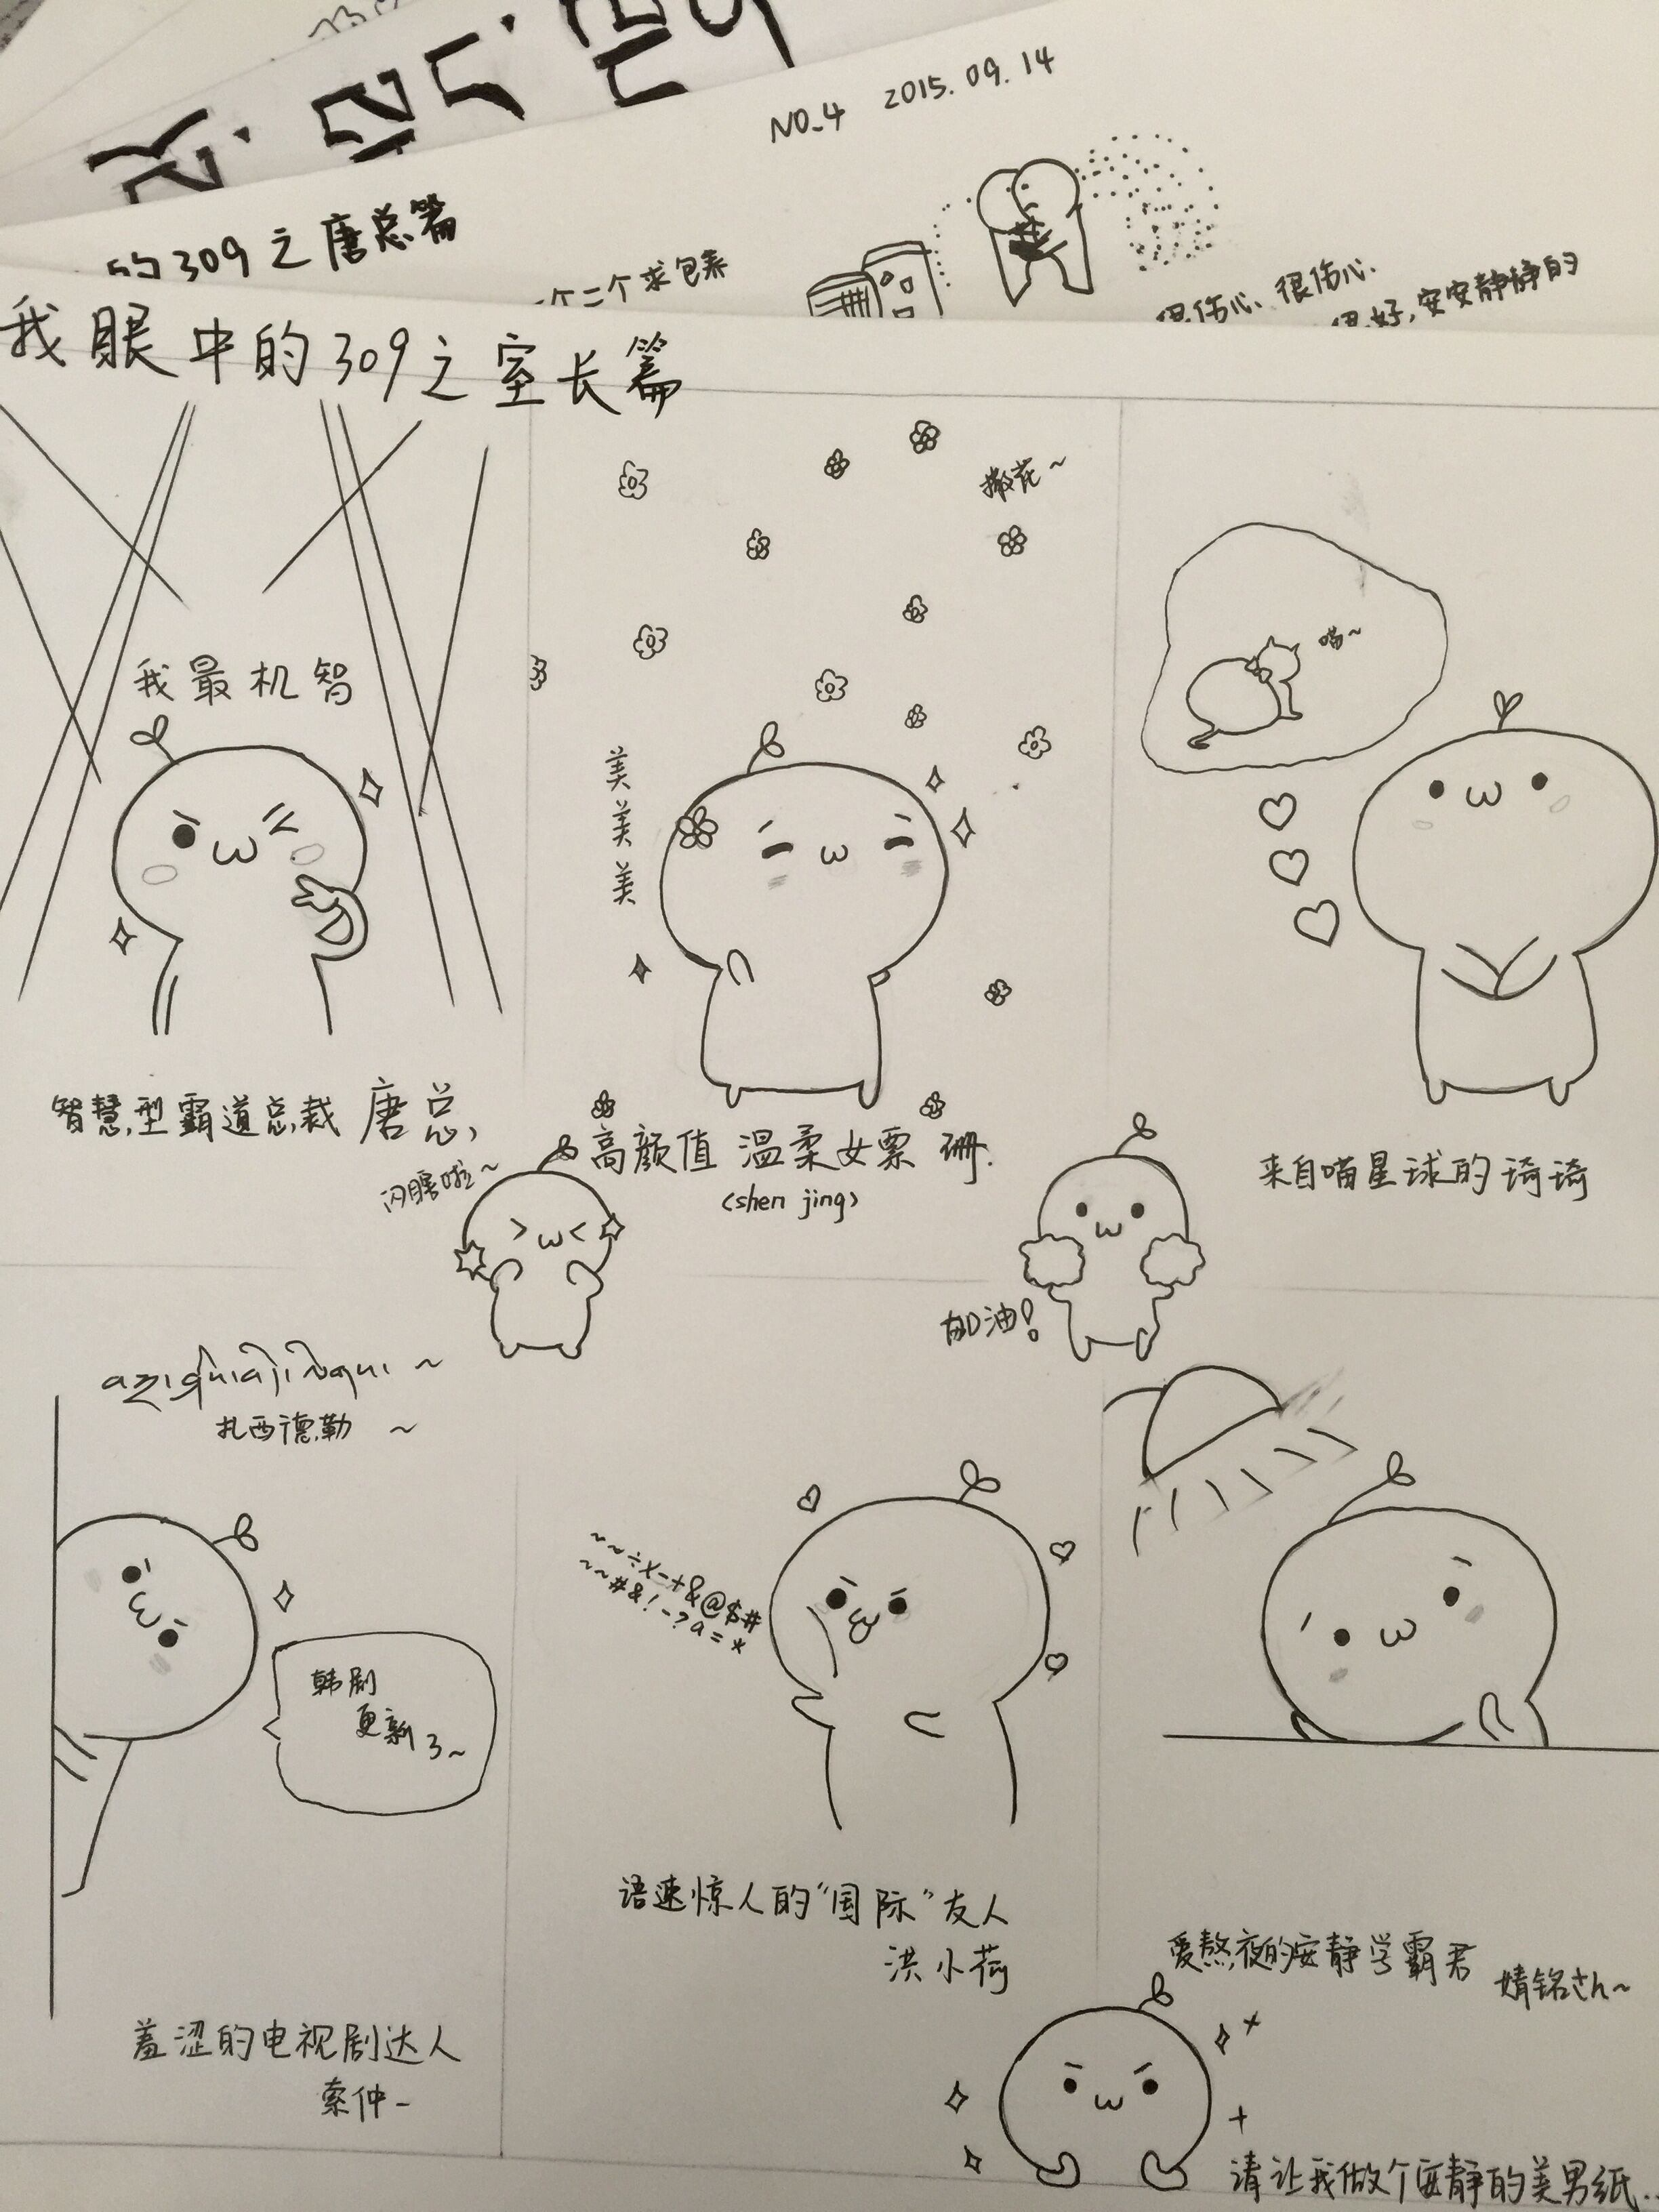 NO.4 2015.09.14
的309之唐总篇
个二个求包养
很伤心、很伤心.
很好,安安静静的
我眼中的309之室长篇
撒花~
喵~
我最机智
美美美
智慧型霸道总裁 唐总,
高颜值 温柔女票 珊.
(shen jing)
来自喵星球的琦琦
闪瞎啦~
加油!
扎西德勒 ~
~~÷x-+&@$#
~~#&!-?a=*
韩剧
更新了~
语速惊人的“国际”友人
洪小荷
爱熬夜的安静学霸君 婧铭さん~
羞涩的电视剧达人
索仲~
请让我做个安静的美男纸..